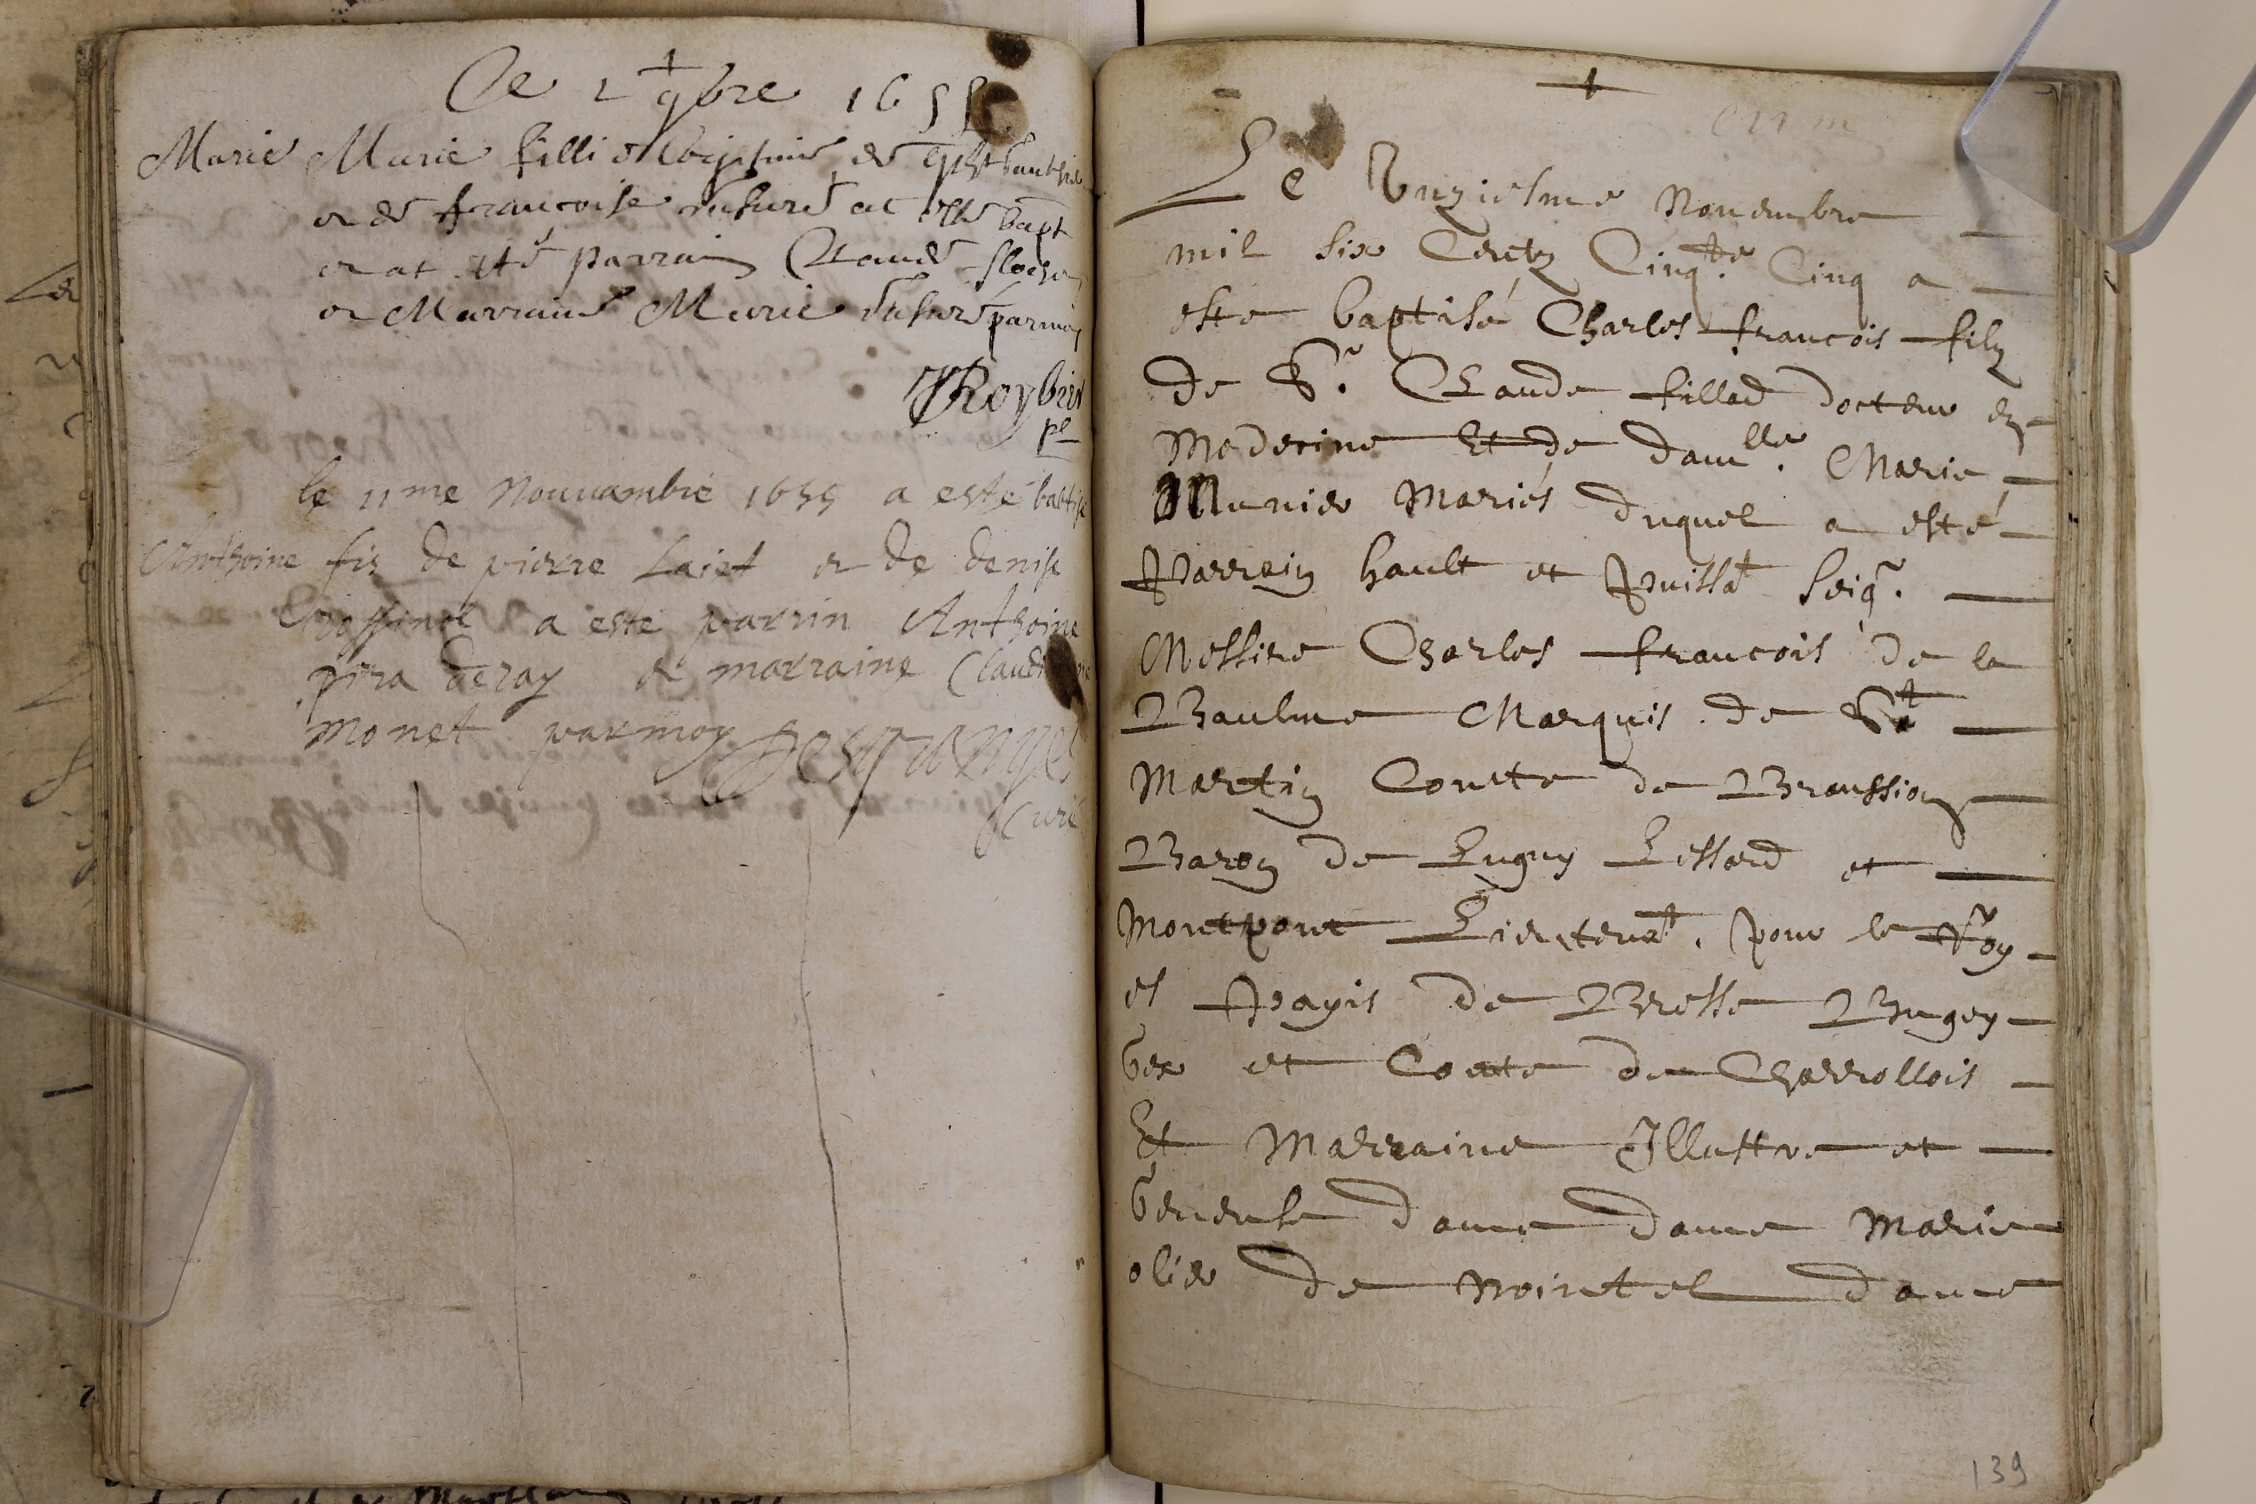 Ce 2 9bre 1655
Marie Marie fille legitime de
et de francoise at esté bapt
et at esté parrain Claude
et Marraine Marie parmoy
Roybin
le 11me Nouuambre 1655 a esté baptise
Anthoine fis de pierre Laiet et de denise
a este parrin Anthoine
pira deray et marraine Claudine
monet parmoy Desgranges
Curé
Le Unziesme Nouembre
mil six Centz Cinqte Cinq a
este baptisé Charles francois filz
de Sr. Claude fillod docteur en
Medecine Et de damlle. Marie
Munier Mariés duquel a esté
Parrain hault et Puisst Seigr.
Messire Charles francois de la
Baulme Marquis de St
Martin Conte de Braussion
Baron de Lugny Lessard et
Montpont Lieutent. pour le Roy
es Payis de Bresse Bugey
Gex et Conte de Charrollois
Et Marraine Illustre et
Genereuse dame dame Marie
olier de Nointel dame
139